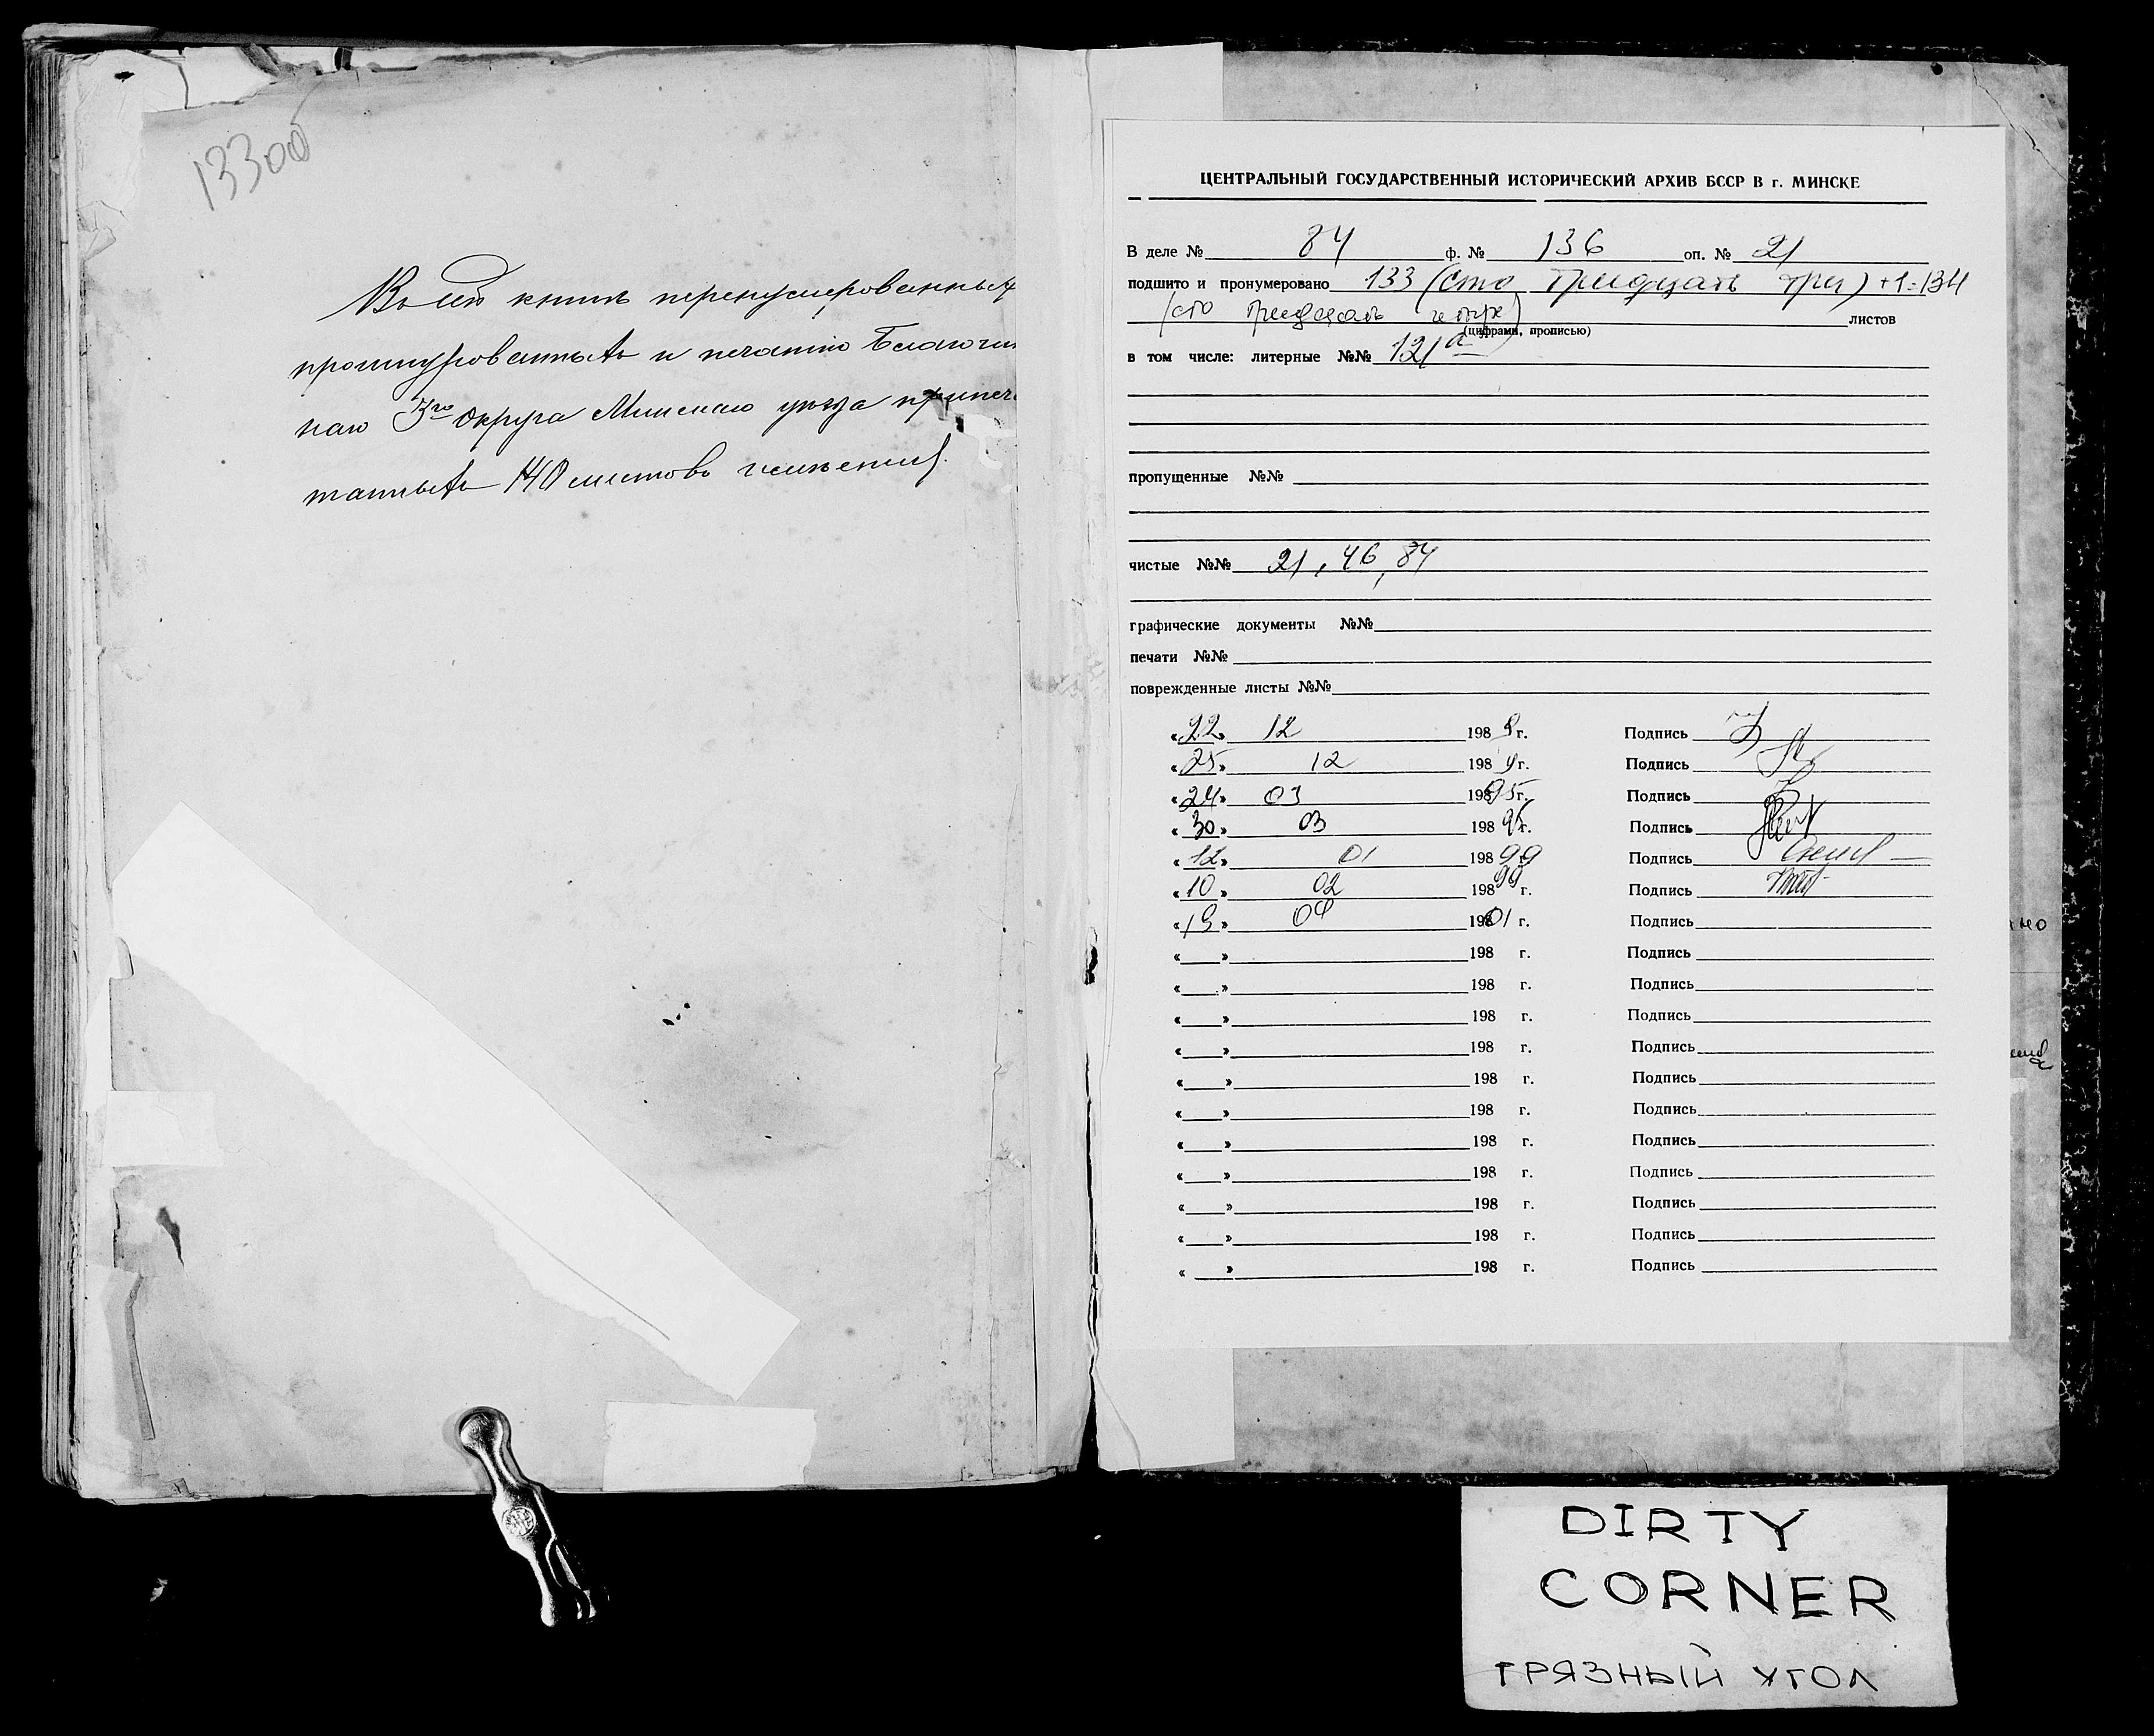 133об
Въ сей книгѣ перенумерованныхъ
прошнурованныхъ и печатью Благочин
наго 3го округа Минскаго уѣзда припеча
танныхъ 140 листовъ
ЦЕНТРАЛЬНЫЙ ГОСУДАРСТВЕННЫЙ ИСТОРИЧЕСКИЙ АРХИВ БССР В г. МИНСКЕ
В деле № 84 ф. № 136 оп. № 21
подшито и пронумеровано 133 (сто тридцать три) +1=134
(сто тридцать четыре) листов
(цифрами, прописью)
в том числе: литерные №№ 121а
пропущенные №№
чистые №№ 21, 46, 84
графические документы №№
печати №№
поврежденные листы №№
«22» 12 198 г. Подпись
«25» 12 198 г. Подпись
«24» 03 19895г. Подпись
«30» 03 198 95г. Подпись
«12» 01 198 99 Подпись
«10» 02 198 99 г. Подпись
«19» 04 19801 г. Подпись
« » 198 г. Подпись
« » 198 г. Подпись
« » 198 г. Подпись
« » 198 г. Подпись
« » 198 г. Подпись
« » 198 г. Подпись
« » 198 г. Подпись
« » 198 г. Подпись
« » 198 г. Подпись
« » 198 г. Подпись
« » 198 г. Подпись
DIRTY
CORNER
ГРЯЗНЫЙ УГОЛ